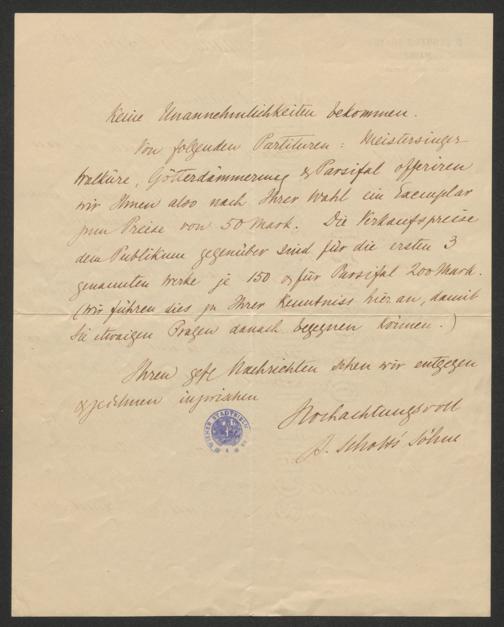 keine Unannehmlichkeiten bekommen.
Von folgenden Partituren: Meistersinger
Walküre, Götterdämmerung & Parsifal offeriren
wir Ihnen also nach Ihrer Wahl ein Exemplar
zum Preise von 50 Mark. Die Verkaufspreise
dem Publikum gegenüber sind für die ersten 3
genannten Werke je 150 & für Parsifal 200 Mark.
(Wir führen dies zu Ihrer Kenntniss hier an, damit
Sie etwaigen Fragen danach begegnen können.)
Ihren gefl Nachrichten sehen wir entgegen
& zeichnen inzwischen
Hochachtungsvoll
B. Schott's Söhne